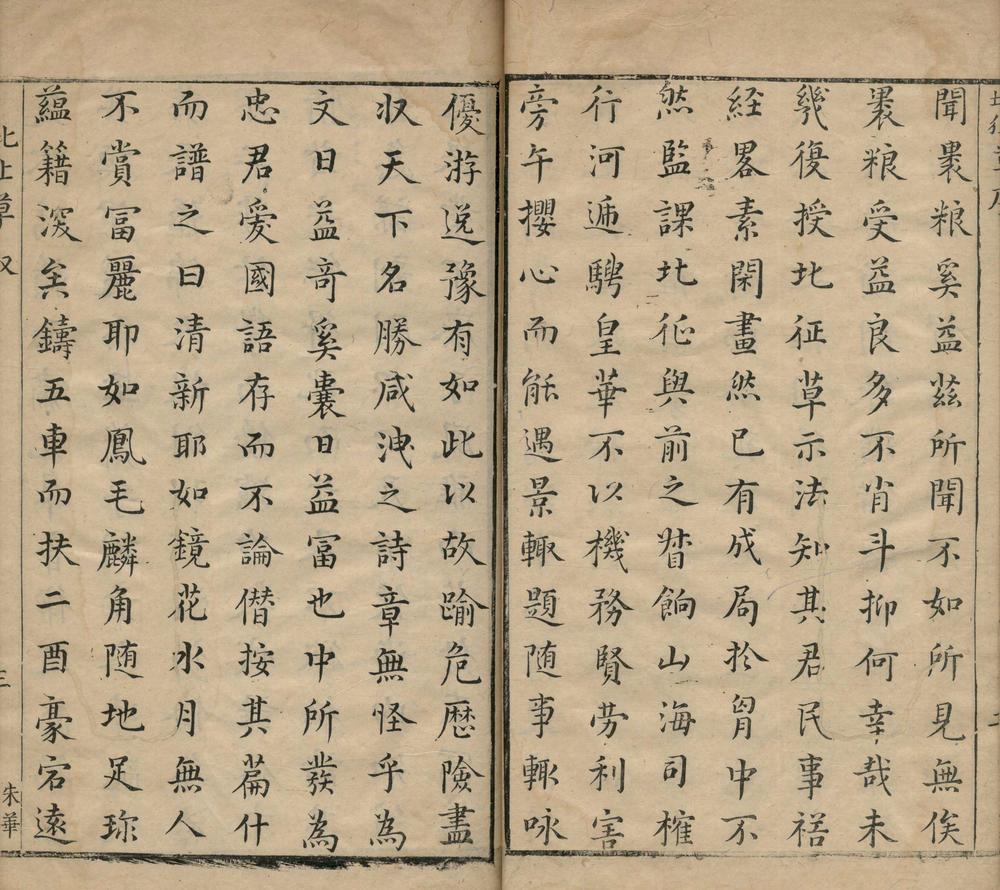 聞裹粮奚益茲所聞不如所見無俟
裹粮受益良多不肖斗抑何幸哉未
幾復授北征草示法知其君民事禔
経畧素閑畫然已有成局扵胷中不
然監課北征與前之督餉山海司榷
行河遞騁皇華不以機務賢劳利害
旁午攖心而能遇景輙題随事輙咏
優游逸豫有如此以故踰危歴險盡
収天下名勝咸洩之詩章無怪乎為
文日益竒奚囊日益冨也中所發為
忠君愛國語存而不論僭按其篇什
而譜之曰清新耶如鏡花水月無人
不賞冨麗耶如鳳毛麟角随地足珎
藴籍深矣鑄五車而扶二酉豪宕遠
三
朱華